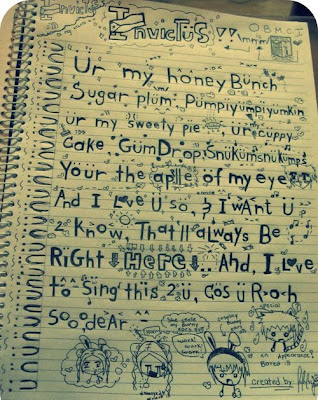 Invictus
Invictus
OBMCI
Ur my honey Bunch
Sugar plum, Pumpiyumpiyumkin
ur my sweety pie ur cuppy
Cake GumDrop, Snukumsnukumps
Your the apple of my eye
And I Love U so, 3 I wAnt U
Know, That'll always Be
Right Here And, I Love
to Sing this 2 u, Cos U R o h
Soo, deAr
special
work!
work!
work!
en Appearance!
Bored!!
created by: